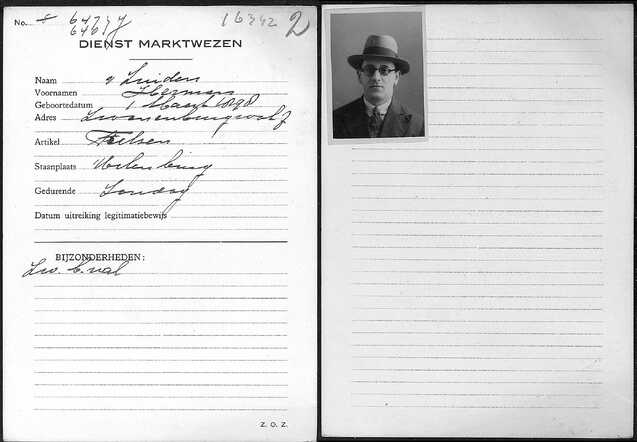 No. 64737 16342 2
6461
DIENST MARKTWEZEN
Naam v Linden
Voornamen Herman
Geboortedatum 1 Maart 1898
Adres Zwanenburgwal
Artikel Fietsen
Staanplaats Uilenburg
Gedurende Zondag
Datum uitreiking legitimatiebewijs
BIJZONDERHEDEN:
Z. O. Z.